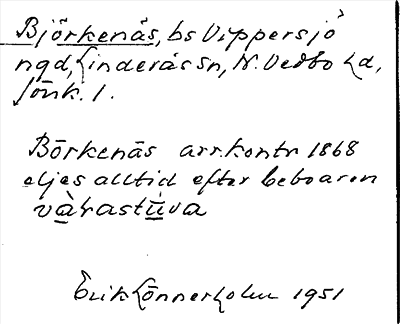 Björkenäs, bs Vippersjö
ngd, Linderås Sn, N. Vedbo Hd,
Jönk. l.
Börkenäs arr.kontr 1868
eljes alltid efter beboaren
våra stuva
Erik Lönnerholm 1951